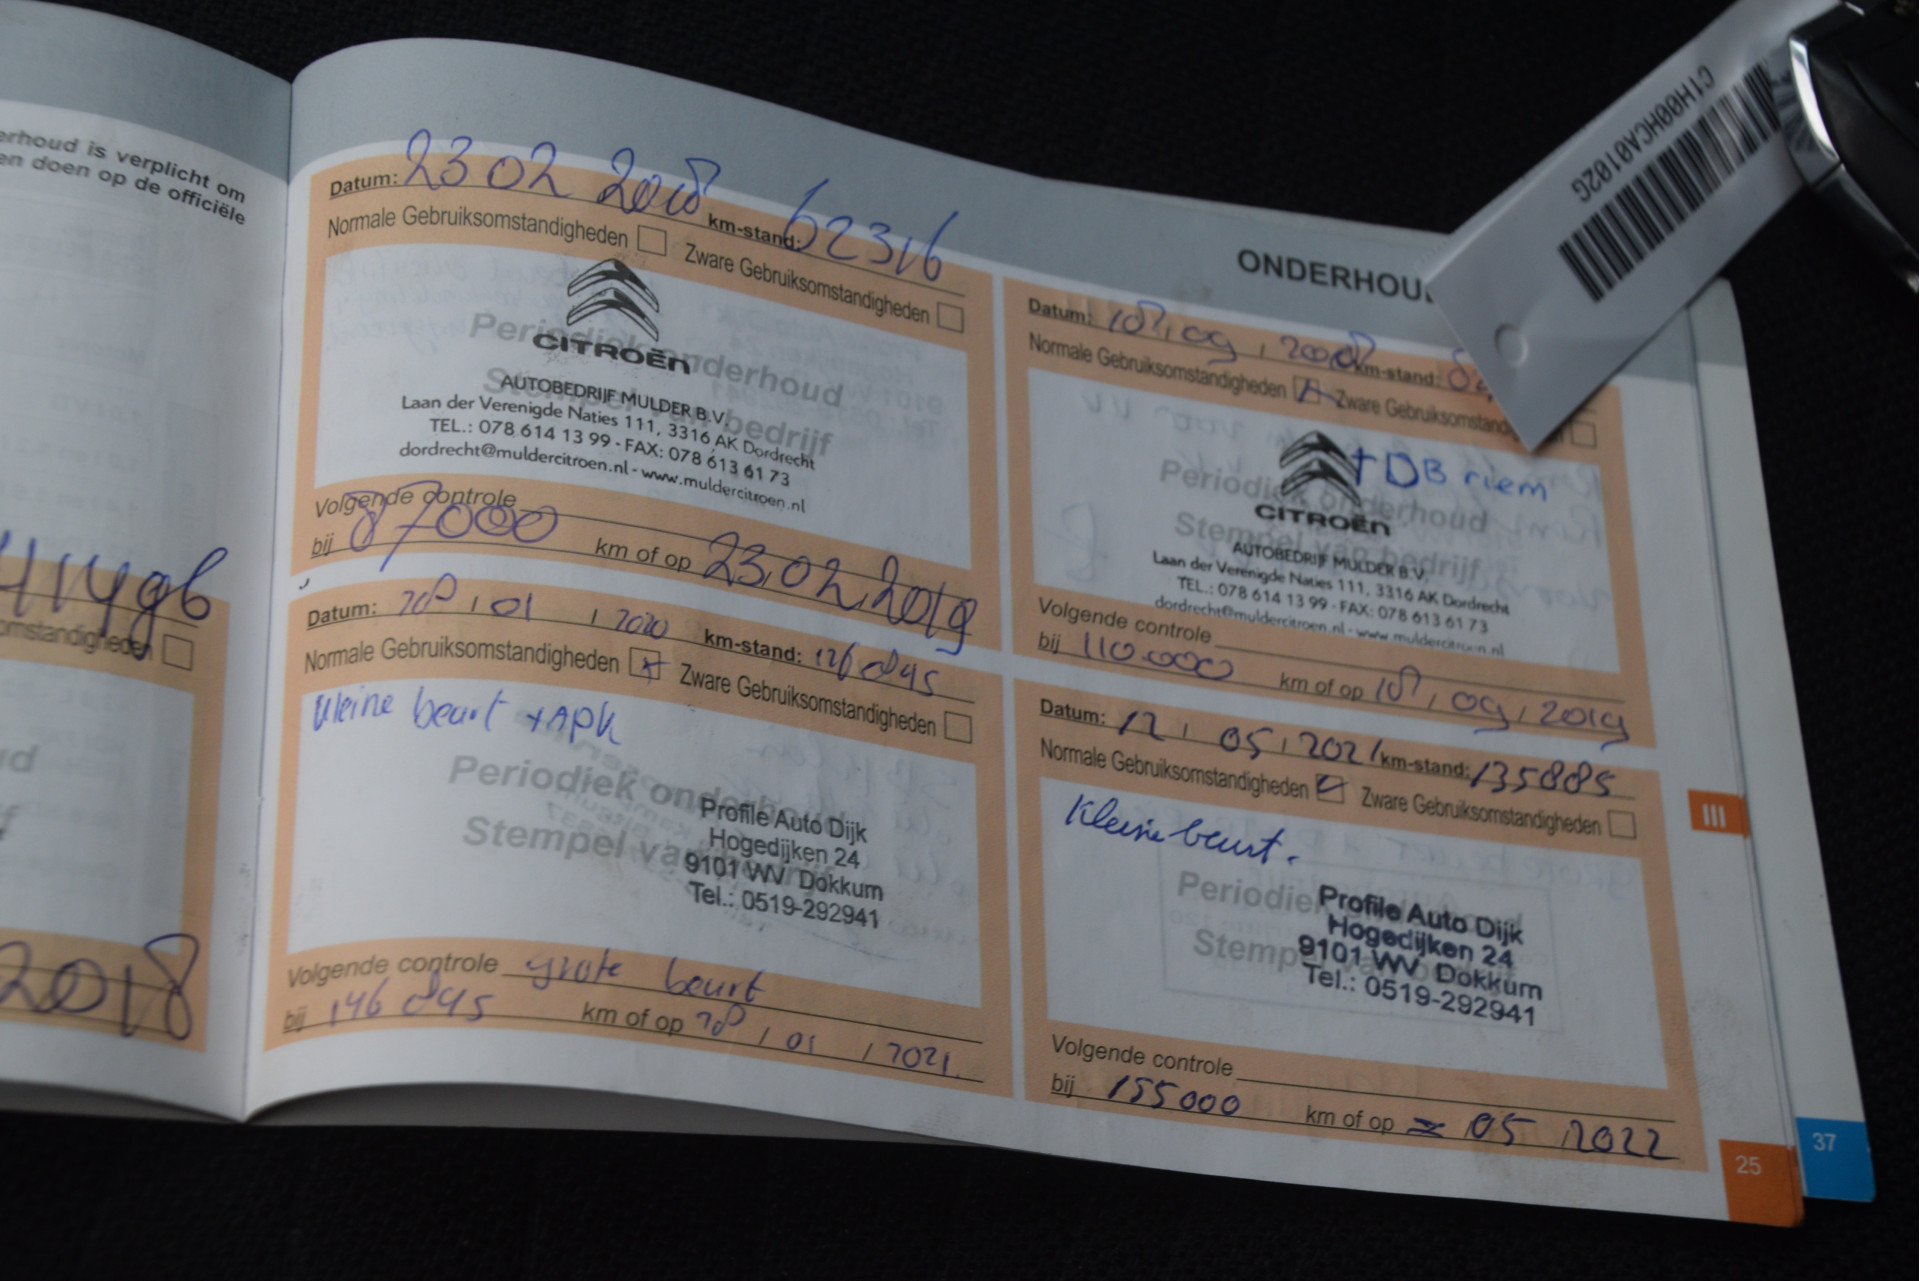 erhoud is verplicht om
en doen op de officiële
41496
omstandigheden
2018
ONDERHOU
Datum: 23 02 2018 km-stand: 62316
Normale Gebruiksomstandigheden Zware Gebruiksomstandigheden
Periodiek onderhoud
Stempel van bedrijf
CITROËN
AUTOBEDRIJF MULDER B.V.
Laan der Verenigde Naties 111, 3316 AK Dordrecht
TEL.: 078 614 13 99 - FAX: 078 613 61 73
dordrecht@muldercitroen.nl - www.muldercitroen.nl
Volgende controle
bij 87000 km of op 23.02.2019
Datum: 18, 09, 2018 km-stand:
Normale Gebruiksomstandigheden Zware Gebruiksomstand
+ DB riem
Periodiek onderhoud
Stempel van bedrijf
CITROËN
AUTOBEDRIJF MULDER B.V.
Laan der Verenigde Naties 111, 3316 AK Dordrecht
TEL.: 078 614 13 99 - FAX: 078 613 61 73
dordrecht@muldercitroen.nl - www.muldercitroen.nl
Volgende controle
bij 110.000 km of op 18, 09, 2019
Datum: 28 / 01 / 2020 km-stand: 126845
Normale Gebruiksomstandigheden Zware Gebruiksomstandigheden
kleine beurt + APK
Periodiek onderhoud
Stempel van bedrijf
Profile Auto Dijk
Hogedijken 24
9101 WV Dokkum
Tel.: 0519-292941
Volgende controle grote beurt
bij 146845 km of op 28 / 01 / 2021
Datum: 12 / 05 / 2021 km-stand: 135885
Normale Gebruiksomstandigheden Zware Gebruiksomstandigheden
Kleine beurt.
Periodiek
Stempel van
Profile Auto Dijk
Hogedijken 24
9101 WV Dokkum
Tel.: 0519-292941
Volgende controle
bij 155000 km of op 05 2022
III
25
37
C1H00HCA0102G